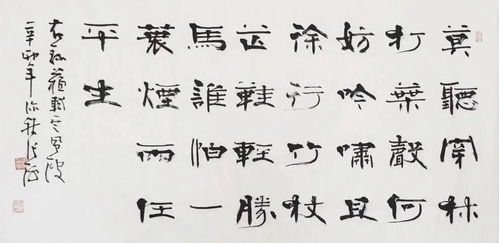 莫聽穿林
打葉聲何
妨吟嘯且
徐行竹杖
芒鞋輕勝
馬誰怕一
蓑煙雨任
平生
右録蘇軾定風波
辛卯年